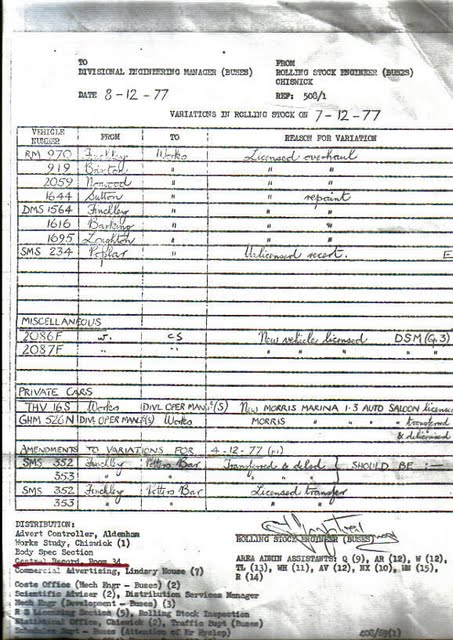 TO FROM
DIVISIONAL ENGINEERING MANAGER (BUSES) ROLLING STOCK ENGINEER (BUSES)
CHISWICK
DATE 8-12-77 REF: 508/1
VARIATIONS IN ROLLING STOCK ON 7-12-77
VEHICLE NUMBER FROM TO REASON FOR VARIATION
RM 970 Finchley Works Licensed overhaul
919 Brixton " " "
2059 Norwood " " "
1644 Sutton " " repaint
DMS 1564 Finchley " " "
1616 Barking " " "
1695 Loughton " " "
SMS 234 Poplar " Unlicensed recert. E
MISCELLANEOUS
2086F W. CS New vehicle licensed DSM (Gp 3)
2087F " " " " " "
PRIVATE CARS
THV 16S Works DIVL OPER MANG'(S) New MORRIS MARINA 1·3 AUTO SALOON license
GHM 526N DIVL OPER MANG(S) Works MORRIS " " " " transferred
& delicensed
AMENDMENTS TO VARIATIONS FOR 4-12-77
SMS 352 Finchley Potters Bar Transferred & delcd } SHOULD BE :—
353 " " " "
SMS 352 Finchley Potters Bar Licensed transfer
353 " " " "
DISTRIBUTION:
Advert Controller, Aldenham
Works Study, Chiswick (1)
Body Spec Section
Central Record, Room 34
Commercial Advertising, Lindsey House (7)
Costs Office (Mech Engr - Buses) (2)
Scientific Adviser (2), Distribution Services Manager
Mech Engr (Development - Buses) (3)
R S Licensing Section (5), Rolling Stock Inspection
Statistical Office, Chiswick (2), Traffic Supt (Buses)
Schedules Supt - Buses (Attention of Mr Hyslop)
ROLLING STOCK ENGINEER (BUSES)
AREA ADMIN ASSISTANTS: Q (9), AR (12), W (12),
TL (13), WH (11), AV (12), NX (10), WN (15),
R (14)
408/59(2)